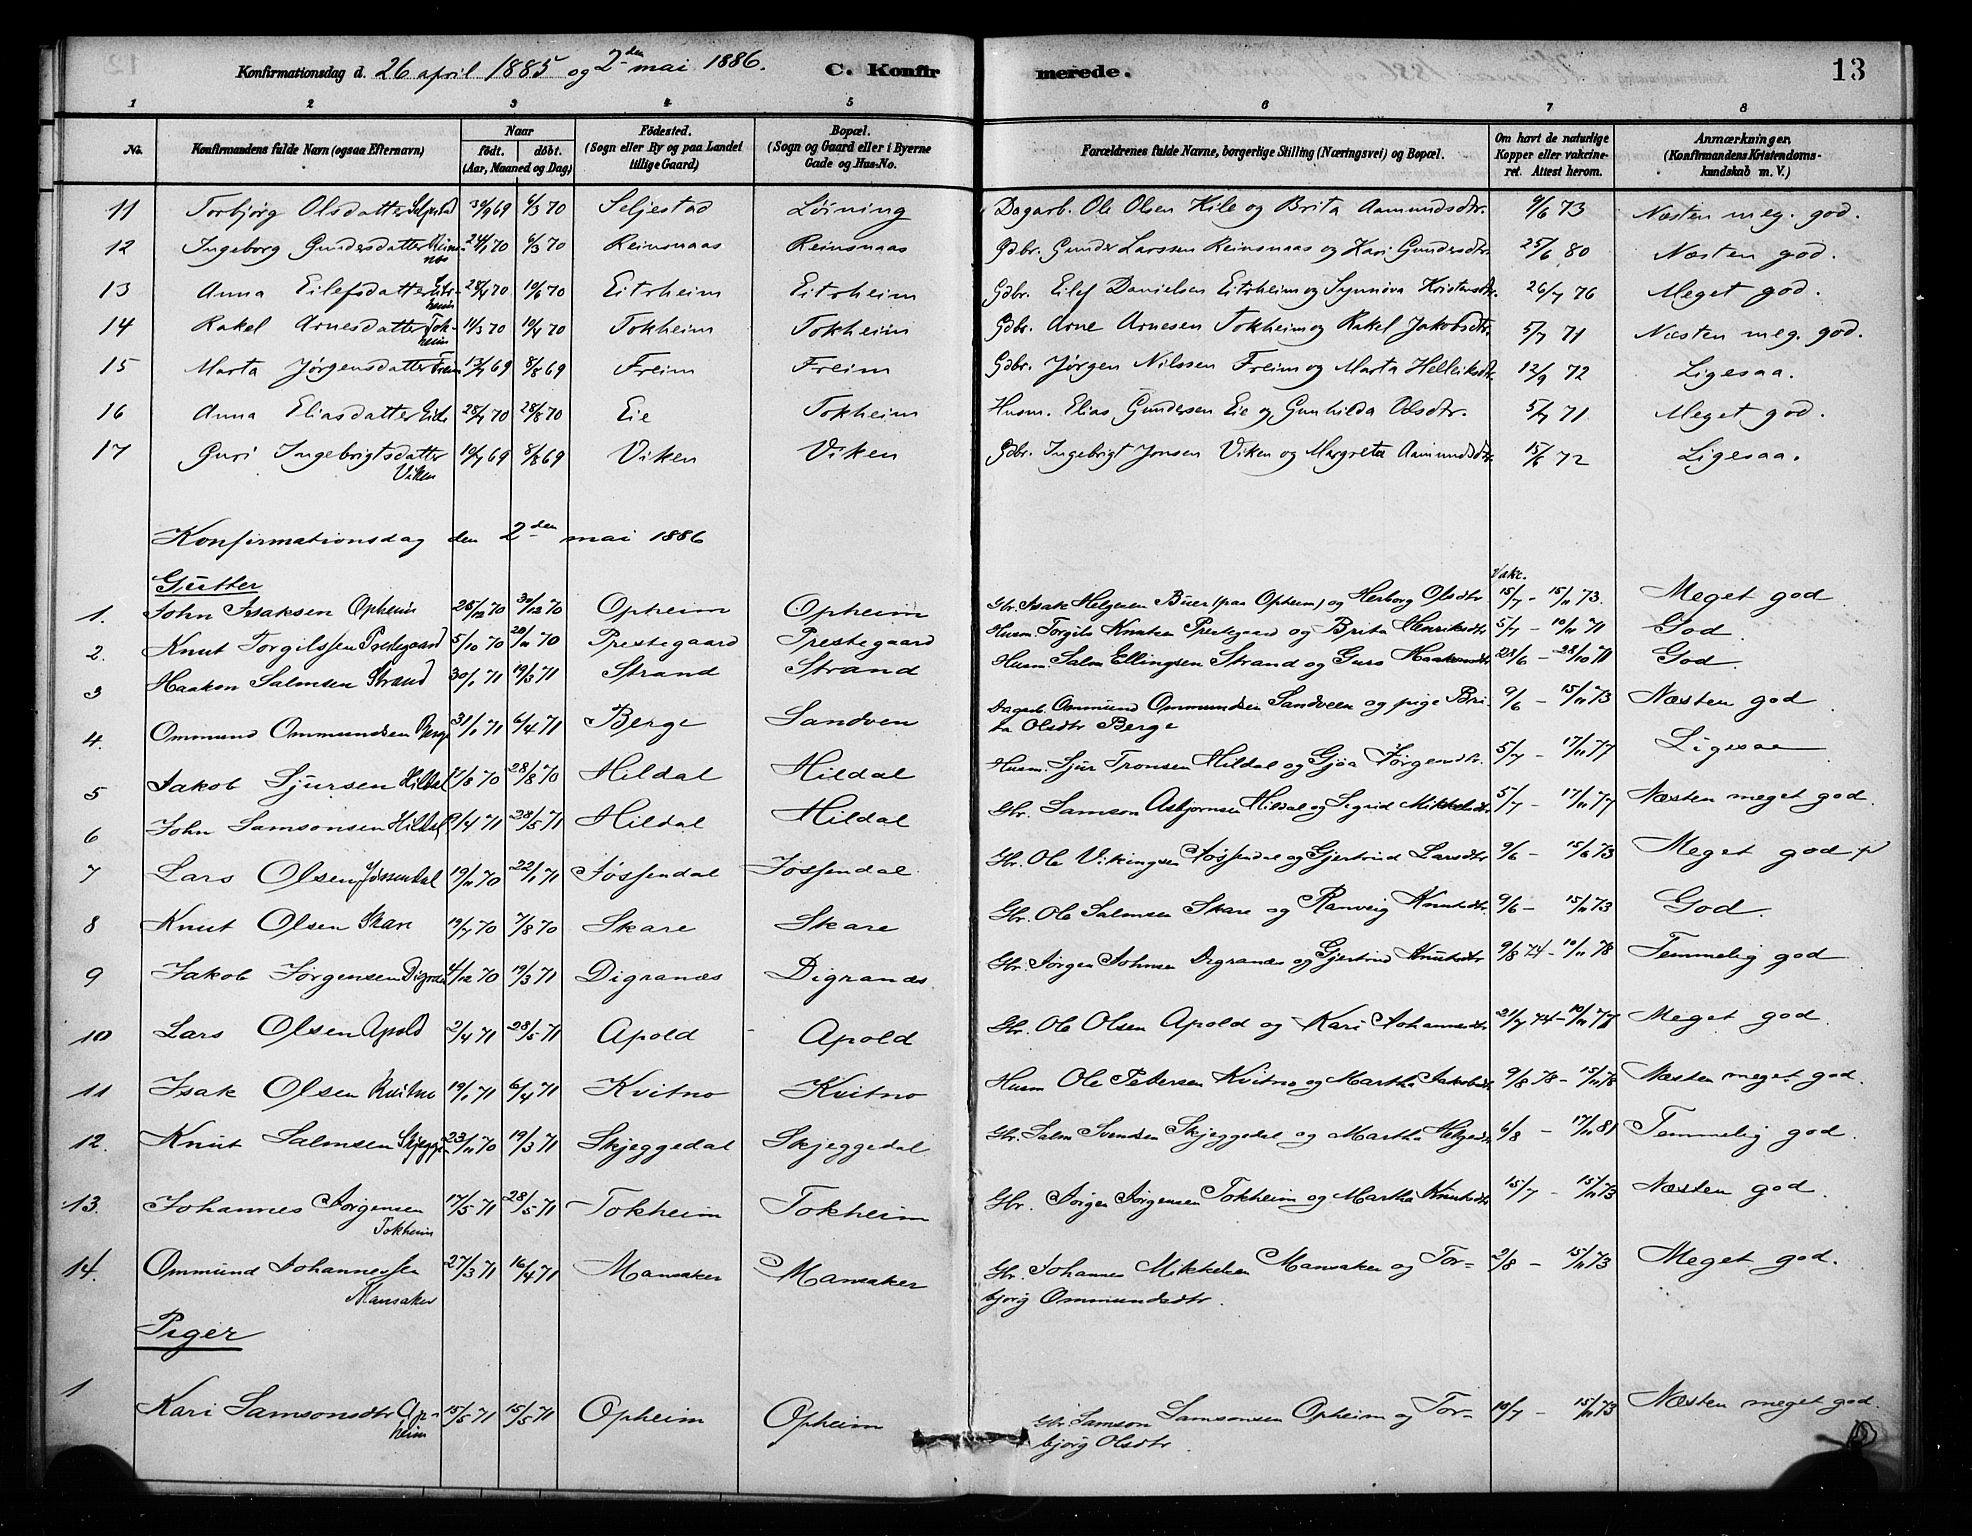 Konfirmationsdag d. 26 april 1885 og 2den mai 1886. C. Konfirmerede. 13
1 2 3 4 5 6 7 8
No. Konfirmandens fulde Navn (ogsaa Efternavn) Naar født. døbt. (Aar, Maaned og Dag) Fødested. (Sogn eller By og paa Landet tillige Gaard) Bopæl. (Sogn og Gaard eller i Byerne Gade og Hus-No. Forældrenes fulde Navne, borgerlige Stilling (Næringsvei) og Bopæl. Om havt de naturlige Kopper eller vakcineret. Attest herom. Anmærkninger. (Konfirmandens Kristendomskundskab m. V.)
11 Torbjørg Olsdatter Seljestad 30/9 69 6/3 70 Seljestad Løining Dagarb. Ole Olsen Kile og Brita Aamundsdtr. 9/6 73 Næsten meg. god.
12 Ingeborg Gundersdatter Reinsnos 24/1 70 6/3 70 Reinsnaas Reinsnaas Gdbr. Gunder Larssen Reinsnaas og Kari Gundersdtr. 25/6 80 Næsten god.
13 Anna Eilefsdatter Eitrheim 28/4 70 19/6 70 Eitrheim Eitrheim Gdbr. Eilef Danielsen Eitrheim og Synnøva Kristensdtr. 26/7 76 Meget god.
14 Rakel Arnesdatter Tokheim 11/3 70 10/4 70 Tokheim Tokheim Gdbr. Arne Arnesen Tokheim og Rakel Jakobsdtr. 5/7 71 Næsten meg. god.
15 Marta Jørgensdatter Freim 13/7 69 8/8 69 Freim Freim Gdbr. Jørgen Nilssen Freim og Marta Helleiksdtr. 12/9 72 Ligesaa.
16 Anna Eliasdatter 28/7 70 28/8 70 Eie Tokheim Husm. Elias Gundersen Eie og Gunhilda Olsdtr. 5/7 71 Meget god.
17 Guri Ingebrigtsdatter Viken 19/7 69 8/8 69 Viken Viken Gdbr. Ingebrigt Jonsen Viken og Margreta Aamundsdtr. 15/6 72 Ligesaa.
Konfirmationsdag den 2den mai 1886
Gutter Vakc.
1. John Isaksen Opheim 28/12 70 30/12 70 Opheim Opheim Gbr. Isak Helgesen Buer (paa Opheim) og Herborg Olsdtr 15/7 - 15/11 73. Meget god
2. Knut Torgilssen Prestegaard 5/10 70 20/11 70 Prestegaard Prestegaard Husm. Torgils Knutsen Prestegaard og Brita Henriksdtr 5/7 - 10/11 71 God.
3 Haakon Salmsen Strand 30/1 71 19/3 71 Strand Strand Husm. Salm Ellingsen Strand og Guro Haakonsdtr 28/6 - 28/10 71 God
4. Ommund Ommundsen Berge 31/1 71 6/4 71 Berge Sandven Dagarb. Ommund Ommundsen Sandveen og pige Brita Olsdtr Berge 9/6 - 15/11 73 Næsten god
5 Jakob Sjursen Hildal 70 28/8 70 Hildal Hildal Husm. Sjur Tronsen Hildal og Gjøa Jørgensdtr. 5/7 - 17/11 77 Ligesaa
6 John Samsonsen Hildal /4 71 28/5 71 Hildal Hildal Gbr. Samson Asbjørnsen Hildal og Sigrid Mikkelsdtr 5/7 - 17/11 77 Næsten meget god.
7 Lars Olsen Jøssendal 19/11 70 22/1 71 Jøssendal Jøssendal Gbr. Ole Vikingsen Jøssendal og Gjertrud Larsdtr 9/6 - 15/6 73 Meget god
8 Knut Olsen Skare 19/7 70 7/8 70 Skare Skare Gbr. Ole Salmsen Skare og Ranveig Knutsdtr 9/6 - 15/11 73 God.
9 Jakob Jørgensen Digranes 4/12 70 19/3 71 Digranæs Digranæs Gbr. Jørgen Johnsen Digranæs og Gjertrud Knutsdtr 9/8 74 - 10/11 78 Temmelig god
10 Lars Olsen Apold 2/4 71 28/5 71 Apold Apold Gbr. Ole Olsen Apold og Kari Johannesdtr 21/7 74 - 10/11 78 Meget god.
11 Isak Olsen Kvitno 19/1 71 6/4 71 Kvitno Kvitno Husm Ole Pedersen Kvitno og Martha Jakobsdtr 9/8 78 - 15/11 78 Næsten meget god.
12. Knut Salmsen Skjegge 23/11 70 19/3 71 Skjeggedal Skjeggedal Gbr. Salm Svendsen Skjeggedal og Martha Helgesdtr 6/8 - 17/11 81 Temmelig god.
13. Johannes Jørgensen Tokheim 17/5 71 28/5 71 Tokheim Tokheim Gbr. Jørgen Jørgensen Tokheim og Martha Knutsdtr 15/7 - 15/11 73 Næsten god.
14. Ommund Johannessen Mansaker 27/3 71 16/4 71 Mansaker Mansaker Gbr. Johannes Mikkelsen Mansaker og Torbjørg Ommundsdtr. 2/8 - 15/11 73 Meget god.
Piger
1 Kari Samsonsdtr Opheim 15/5 71 15/5 71 Opheim Opheim Gbr Samson Samsonsen Opheim og Torbjørg Olsdtr. 10/7 - 15/11 73 Næsten meget god.